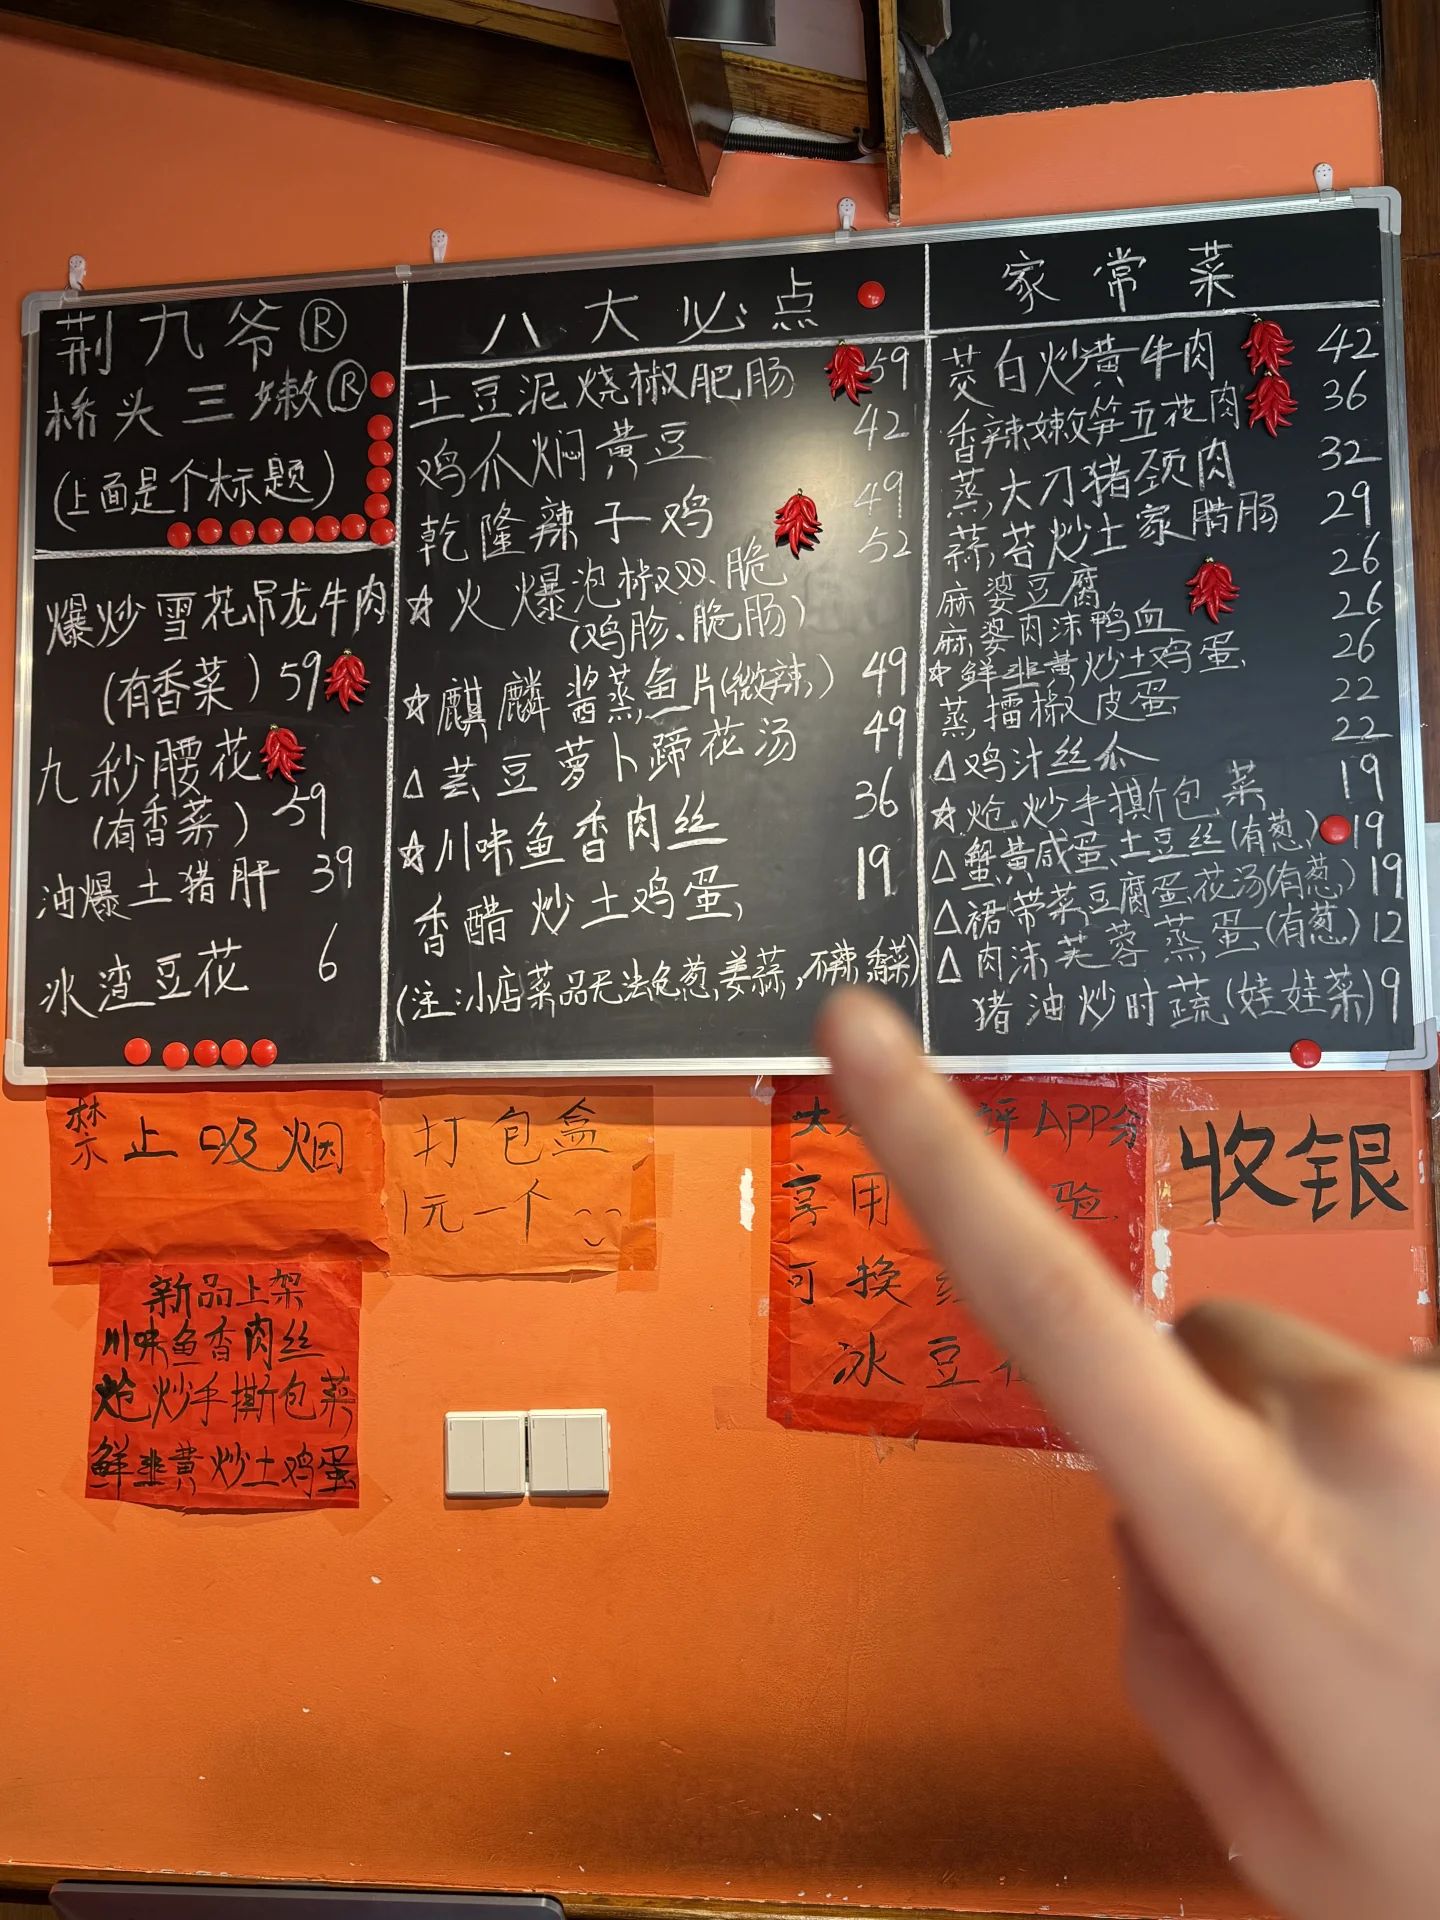 荆九爷®
桥头三嫩®
(上面是个标题)
爆炒雪花吊龙牛肉
(有香菜) 59
九秒腰花
(有香菜) 59
油爆土猪肝 39
冰渣豆花 6
八大必点
土豆泥烧椒肥肠 59
鸡爪焖黄豆 42
乾隆辣子鸡 49
☆火爆泡椒双脆 52
(鸡胗、脆肠)
☆麒麟酱蒸鱼片(微辣) 49
△芸豆萝卜蹄花汤 49
☆川味鱼香肉丝 36
香醋炒土鸡蛋 19
(注:小店菜品无法免葱,姜蒜,不辣,香菜)
家常菜
茭白炒黄牛肉 42
香辣嫩笋五花肉 36
蒸大刀猪颈肉 32
蒜苔炒土家腊肠 29
麻婆豆腐 26
麻婆肉沫鸭血 26
☆鲜韭黄炒土鸡蛋 26
蒸擂椒皮蛋 22
△鸡汁丝瓜 22
☆炝炒手撕包菜 19
△蟹黄咸蛋土豆丝(有葱) 19
△裙带菜豆腐蛋花汤(有葱) 19
△肉沫芙蓉蒸蛋(有葱) 12
猪油炒时蔬(娃娃菜) 9
禁止吸烟
打包盒
1元一个
大 评APP分
享用 验
可换
冰豆
收银
新品上架
川味鱼香肉丝
炝炒手撕包菜
鲜韭黄炒土鸡蛋